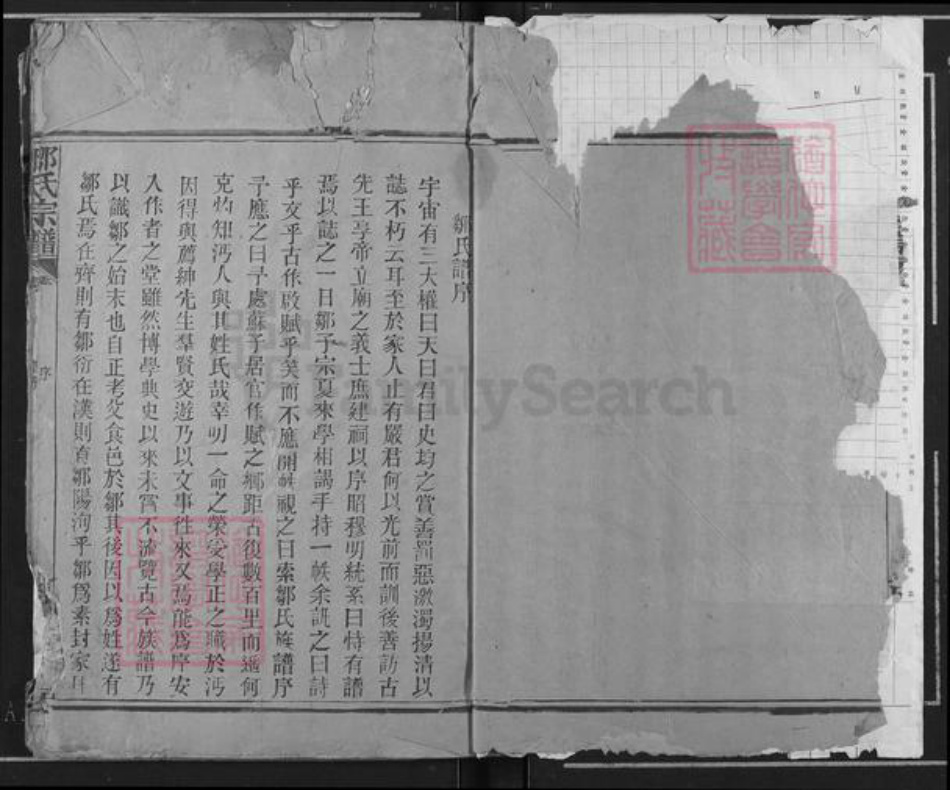 鄒氏譜序
宇宙有三大權曰天曰君曰史均之賞善罰惡激濁揚清以
誌不朽云耳至於家人止有嚴君何以光前而訓後善訪古
先王享帝立廟之義士庶建祠以序昭穆明統系曰特有譜
焉以誌之一日鄒子宗夏來學相謁手持一帙余訊之曰詩
乎文乎古作啟賦乎笑而不應開帙視之曰索鄒氏族譜序
予應之曰予處蘇子居官作賦之鄉距古復數百里而遙何
克灼知沔人與其姓氏哉幸明一命之榮受學正之職於沔
因得與薦紳先生羣賢交遊乃以文事往來又焉能為序安
入作者之堂雖然博學典史以來未嘗不流覽古今族譜乃
以識鄒之始末也自正考父食邑於鄒其後因以爲姓遂有
鄒氏焉在齊則有鄒衍在漢則有鄒陽洵乎鄒爲素封家
鄒氏宗譜
序
FamilySearch